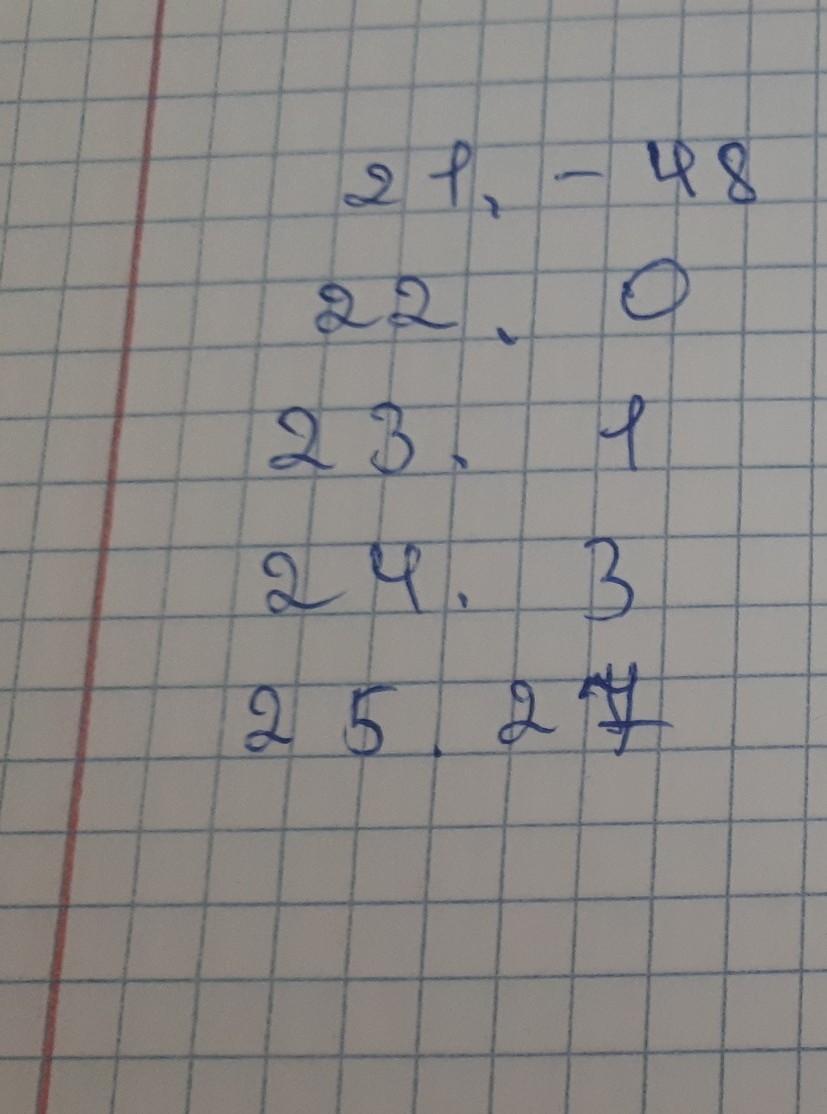 21. - 48
22. 0
23. 1
24. 3
25. 27